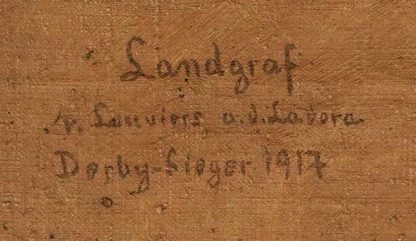 Landgraf
v. Louviers a.d. Ladora
Derby-Sieger 1917